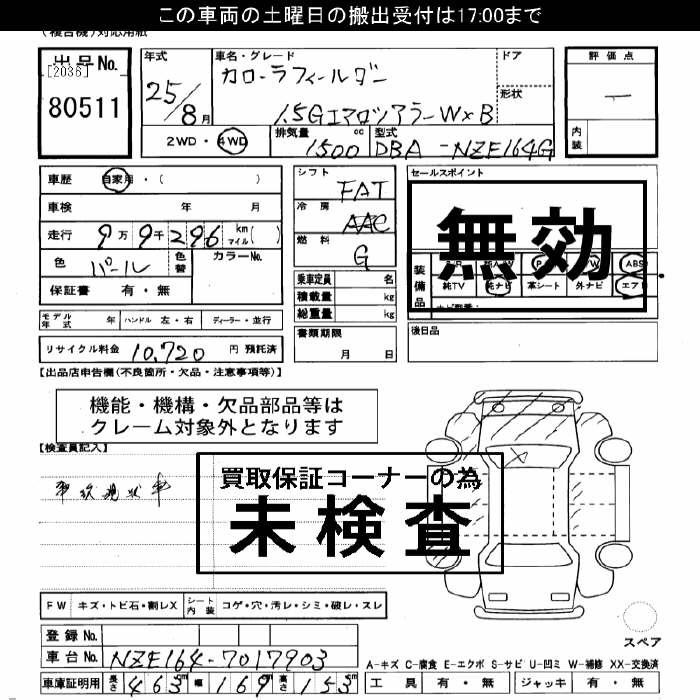 この車両の土曜日の搬出受付は17:00まで
(複合機)対応用紙
出品No.
[2036]
80511
年式
25/8月
車名・グレード
カローラフィールダー
1.5GエアロツアラーW×B
ドア
形状
評価点
―
内装
2WD・4WD
排気量 1500 cc
型式 DBA-NZE164G
車歴 自家用・( )
車検 年 月
走行 9万9千296 km マイル( )
色 パール 色替 カラーNo.
保証書 有・無
シフト FAT
冷房 AAC
燃料 G
乗車定員 名
積載量 kg
総重量 kg
書類期限
月 日
セールスポイント
無効
装備品
P W ABS
純TV 純ナビ 革シート 外ナビ エアB
後日品
モデル年式 年 ハンドル 左・右 ディーラー・並行
リサイクル料金 10,720 円 預託済
【出品店申告欄(不良箇所・欠品・注意事項等)】
機能・機構・欠品部品等は
クレーム対象外となります
【検査員記入】
現状車
買取保証コーナーの為
未検査
FW キズ・トビ石・割レX シート内装 コゲ・穴・汚レ・シミ・破レ・スレ
スペア
登録No.
車台No. NZE164-7017903
A-キズ C-腐食 E-エクボ S-サビ U-凹ミ W-補修 XX-交換済
車庫証明用 長さ 463cm 幅 169cm 高さ 153cm
工具 有・無 ジャッキ 有・無